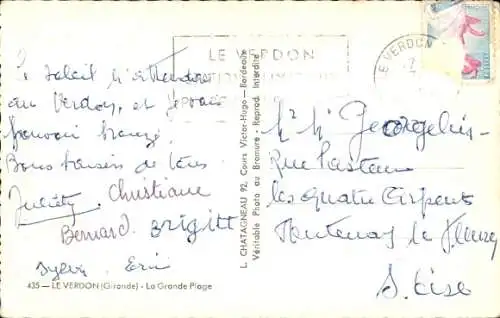 LE VERDON
LE VERDON
Soleil
au Verdon, et je vais
pouvoir bronzer.
Bons baisers de tous
Christiane
Bernard. Brigitt
Sylvie Eric
435 — LE VERDON (Gironde) - La Grande Plage
L. CHATAGNEAU 92, Cours Victor-Hugo — Bordeaux
Véritable Photo au Bromure - Reprod. Interdite
Rue Pasteur
les quatre Arpents
Fontenay le Fleury
S. Oise